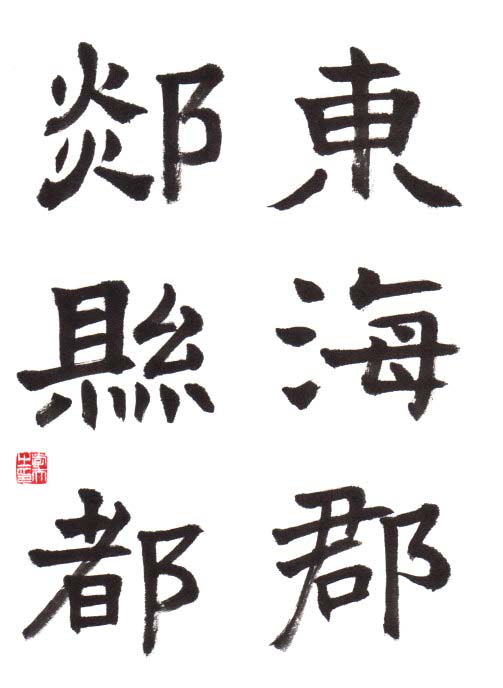 東海郡
郯縣都